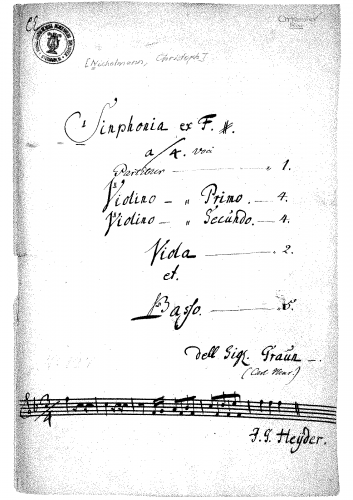 [Nichelmann, Christoph]
Sinphonia ex F. #.
a 4. voci
Partitura 1.
Violino — „ Primo. — 4.
Violino — „ Secundo. — 4.
Viola — „ 2.
et.
Basso. — 5.
dell Sigl. Graun —.
(Carl Heinr.)
3/4
J. G. Heyder.